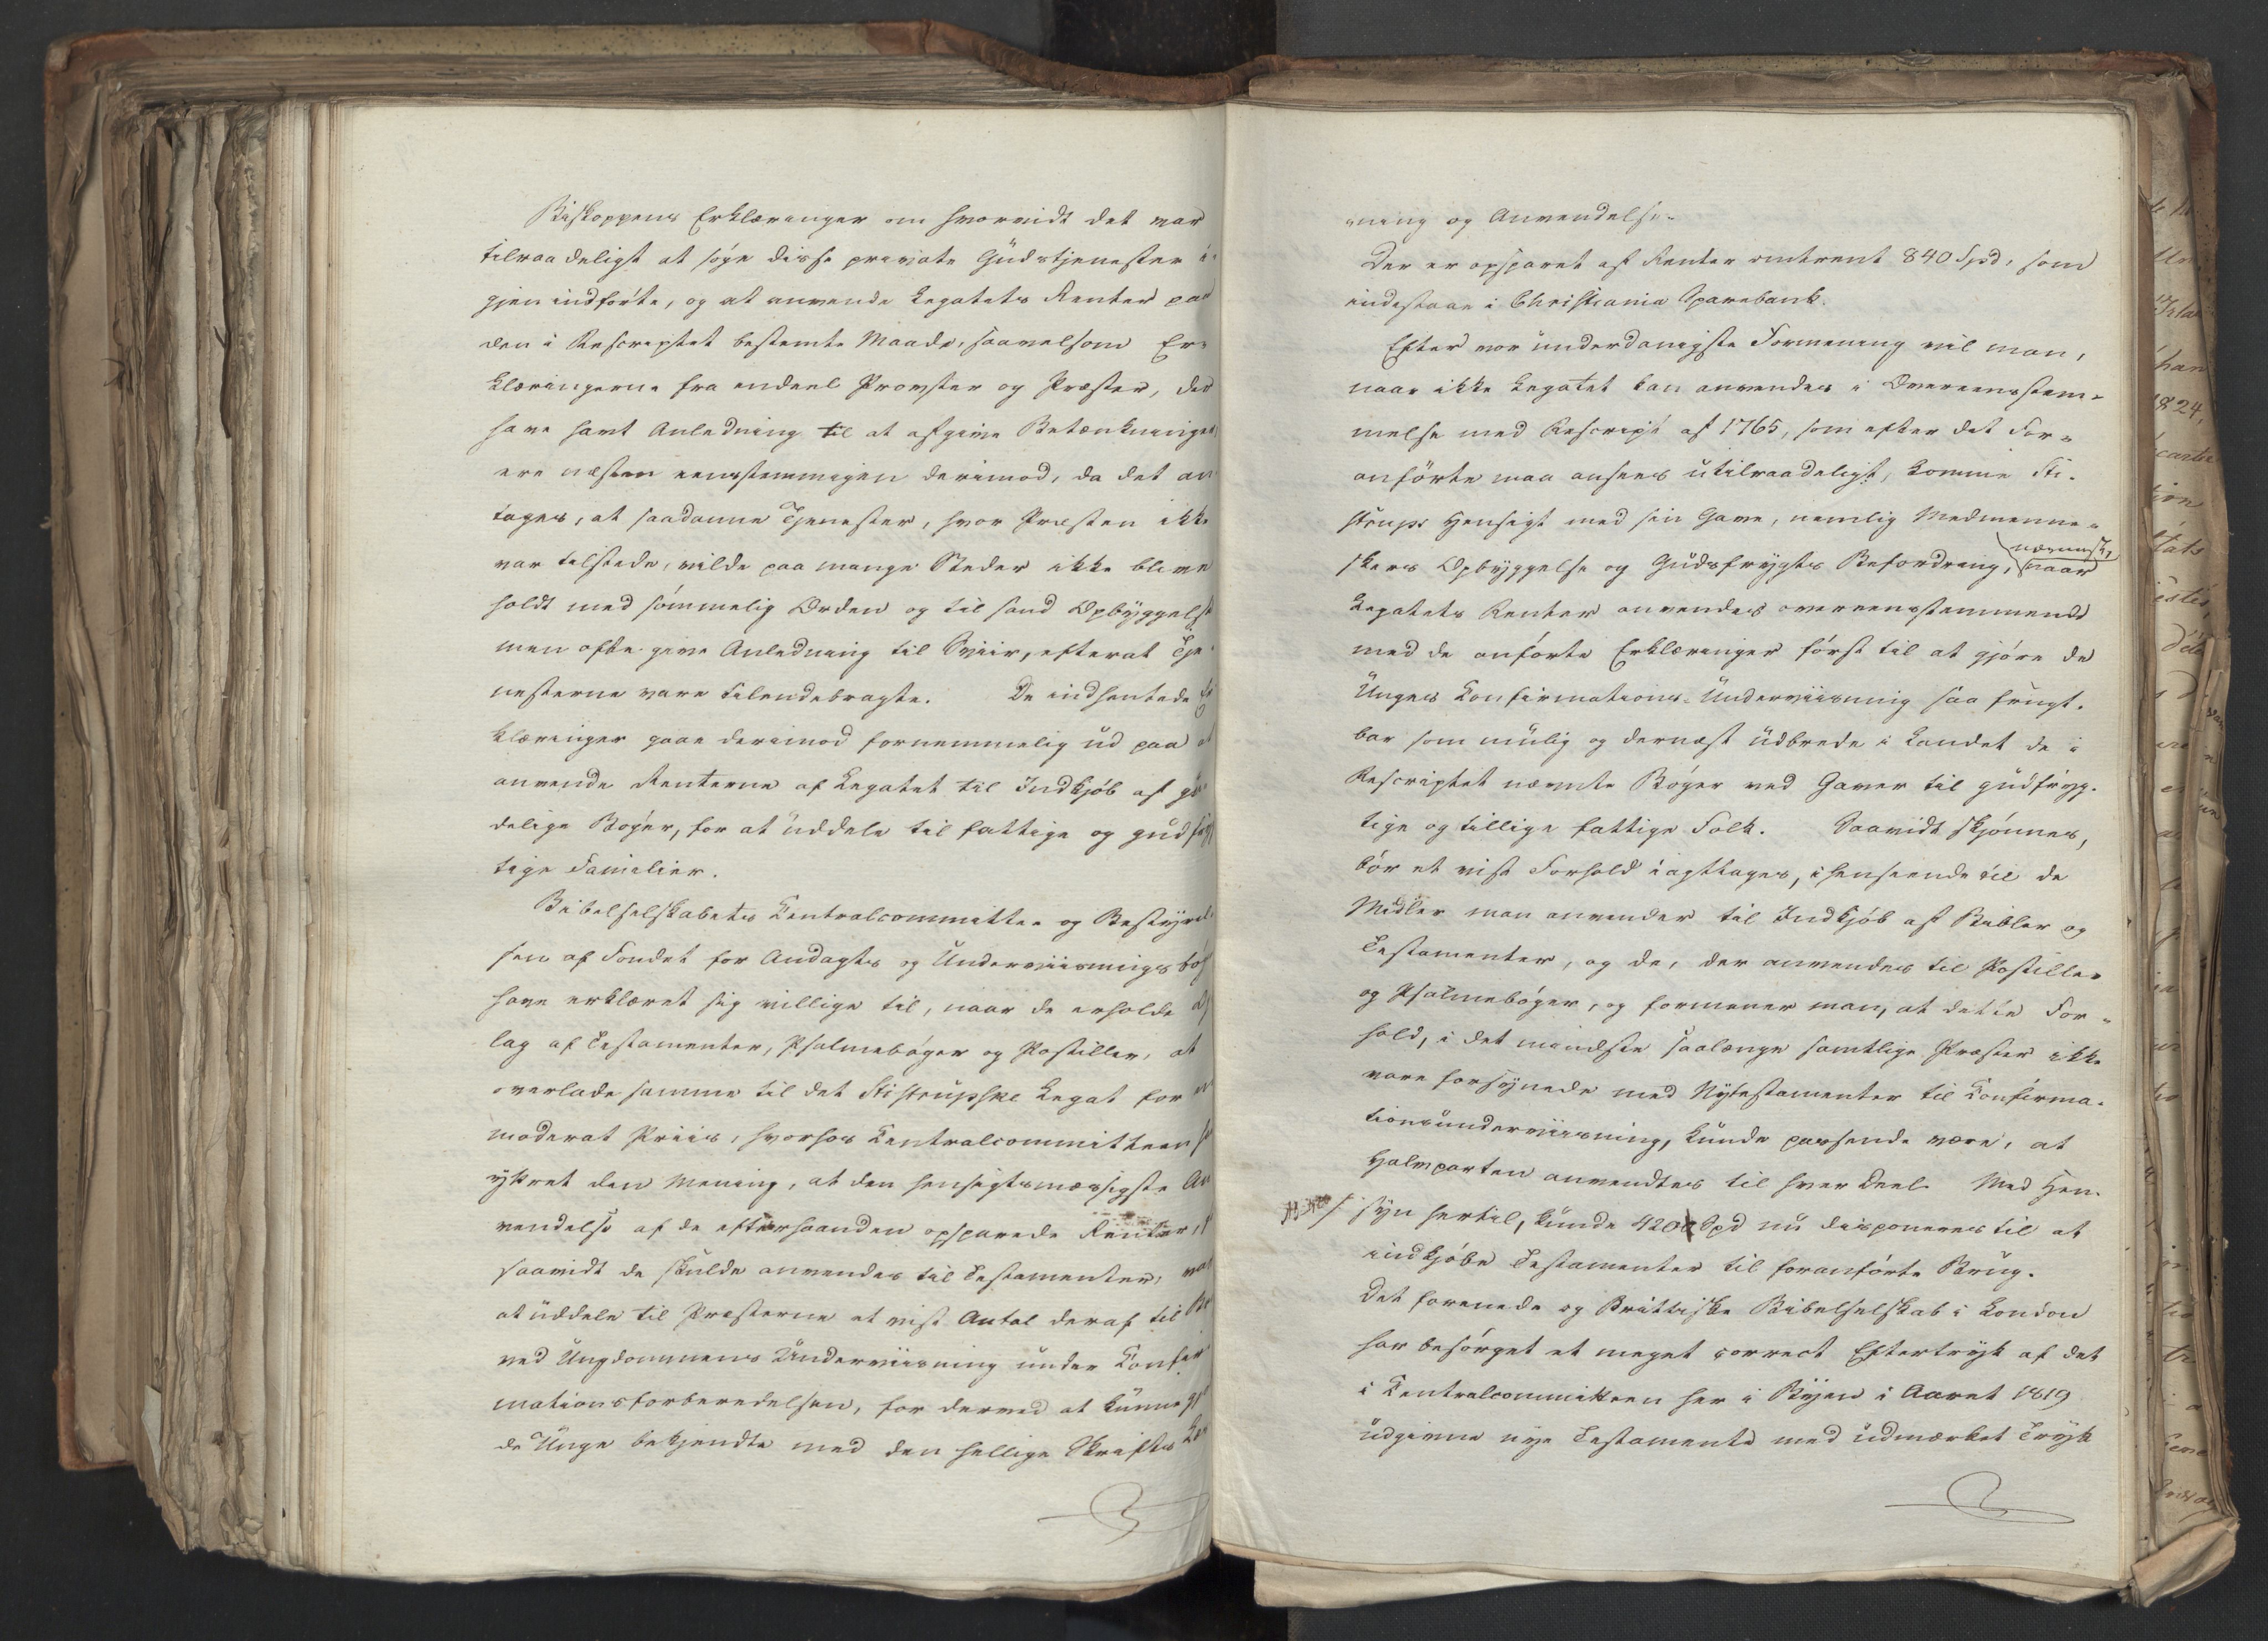 Biskoppens Erklæringer om hvorvidt det var
tilraadeligt at søge disse private Gudstjenester i-
gjen indførte, og at anvende Legatets Renter paa
den i Rescriptet bestemte Maade, saavelsom Er-
klæringerne fra endeel Provster og Præster, der
have havt Anledning til at afgive Betænkninger,
ere næsten eensstemmigen derimod, da det an-
tages, at saadanne Tjenester, hvor Præsten ikke
var tilstede, vilde paa mange Steder ikke blive
holdt med sømmelig Orden og til sand Opbyggelse
men ofte give Anledning til Sviir, efterat Tje-
nesterne vare tilendebragte. De indhentede Er
klæringer gaae derimod fornemmelig ud paa at
anvende Renterne af Legatet til Indkjøb af gu-
delige Bøger, for at uddele til fattige og gudfryg
tige Familier.
Bibelselskabets Centralcommittee og Bestyrel-
sen af Fondet for Andagts og Underviisningsbøg
have erklæret sig villige til, naar de erholde Op
lag af Testamenter, Psalmebøger og Postiller, at
overlade samme til det Stistrupske Legat for en
moderat Priis, hvorhos Centralcommitteen ha
yttret den Mening, at den hensigtsmæssigste An
vendelse af de efterhaanden opsparede Renter,
saavidt de skulde anvendes til Testamenter, var
at uddele til Præsterne et vist Antal deraf til Br
ved Ungdommens Underviisning under Confir
mationsforberedelsen, for derved at kunne gjø
de Unge bekjendte med den hellige Skrifts Læs
ning og Anvendelse.
Der er opsparet af Renter omtrent 840 Spd, som
indestaae i Christiania Sparebank.
Efter vor underdanigste Formening vil man,
naar ikke Legatet kan anvendes i Overeensstem-
melse med Rescript af 1765, som efter det For-
anførte maa ansees utilraadeligt, komme Sti-
strups Hensigt med sin Gave, nemlig Medmenne-
skers Opbyggelse og Gudsfrygts Befordring, nærmest, naar
Legatets Renter anvendes overeensstemmende
med de anførte Erklæringer først til at gjøre de
Unges Confirmations-Underviisning saa frugt-
bar som mulig og dernæst udbrede i Landet de i
Rescriptet nævnte Bøger ved Gaver til gudfryg-
tige og tillige fattige Folk. Saavidt skjønnes,
bør et vist Forhold iagttages, i Henseende til de
Midler man anvender til Indkjøb af Bibler og
Testamenter, og de, der anvendes til Postiller
og Psalmebøger, og formener man, at dette For-
hold, i det mindste saalænge samtlige Præster ikke
vare forsynede med Nytestamenter til Confirma-
tionsunderviisning, kunde passende være, at
Halvparten anvendtes til hver Deel. Med Hen-
syn hertil, kunde 420 Spd nu disponeres til at
indkjøbe Testamenter til foranførte Brug.
Det forenede og Brittiske Bibelselskab i London
har besørget et meget correct Eftertryk af det
i Centralcommitteen her i Byen i Aaret 1819
udgivne nye Testamente med udmærket Tryk